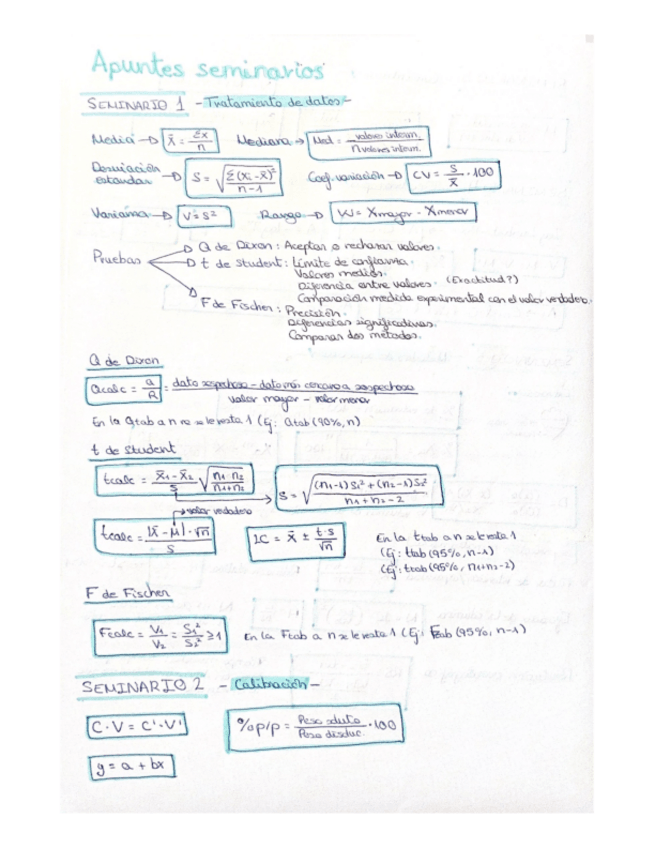 Apuntes seminarios
SEMINARIO 1 - Tratamiento de datos -
Media → x̄ = Σx / n   Mediana → Med = valores interm. / n valores interm.
Desviación estandar → S = √(Σ(xᵢ - x̄)² / n-1)   Coef. variación → CV = S / x̄ · 100
Varianza → V = S²   Rango → W = Xmayor - Xmenor
Pruebas
→ Q de Dixon: Aceptar o rechazar valores.
→ t de student: Límite de confianza.
Valores medios.
Diferencia entre valores. (Exactitud?)
Comparación medida experimental con el valor verdadero.
→ F de Fischer: Precisión.
Diferencias significativas.
Comparar dos métodos.
Q de Dixon
Qcalc = a / R = dato sospechoso - dato más cercano a sospechoso / valor mayor - valor menor
En la Qtab a n no se le resta 1 (Ej: Qtab (90%, n)
t de student
tcalc = x̄1 - x̄2 / S √(n1·n2 / n1+n2) → S = √((n1-1) S1² + (n2-1) S2² / n1+n2-2)
→ valor verdadero
tcalc = |x̄ - μ| · √n / S   IC = x̄ ± t·s / √n
En la ttab a n se le resta 1
(Ej: ttab (95%, n-1)
(Ej: ttab (95%, n1+n2-2)
F de Fischer
Fcalc = V1 / V2 = S1² / S2² ≥ 1   En la Ftab a n se le resta 1 (Ej: Ftab (95%, n-1)
SEMINARIO 2 - Calibración -
C · V = C' · V'   % p/p = Peso soluto / Peso disoluc. · 100
y = a + bx